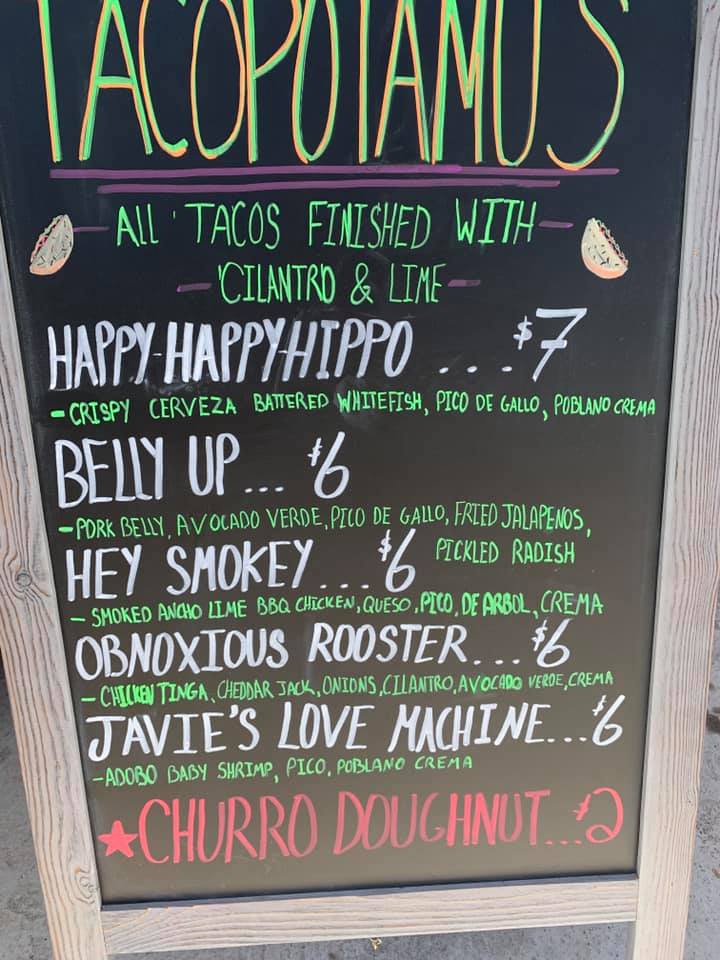 TACOPOTAMUS
ALL TACOS FINISHED WITH
CILANTRO & LIME
HAPPY-HAPPY-HIPPO ....$7
-CRISPY CERVEZA BATTERED WHITEFISH, PICO DE GALLO, POBLANO CREMA
BELLY UP... $6
-PORK BELLY, AVOCADO VERDE, PICO DE GALLO, FRIED JALAPENOS,
PICKLED RADISH
HEY SMOKEY... $6
- SMOKED ANCHO LIME BBQ CHICKEN, QUESO, PICO, DE ARBOL, CREMA
OBNOXIOUS ROOSTER...$6
-CHICKEN TINGA, CHEDDAR JACK, ONIONS, CILANTRO, AVOCADO VERDE, CREMA
JAVIE'S LOVE MACHINE...$6
-ADOBO BABY SHRIMP, PICO, POBLANO CREMA
★CHURRO DOUGHNUT...$2